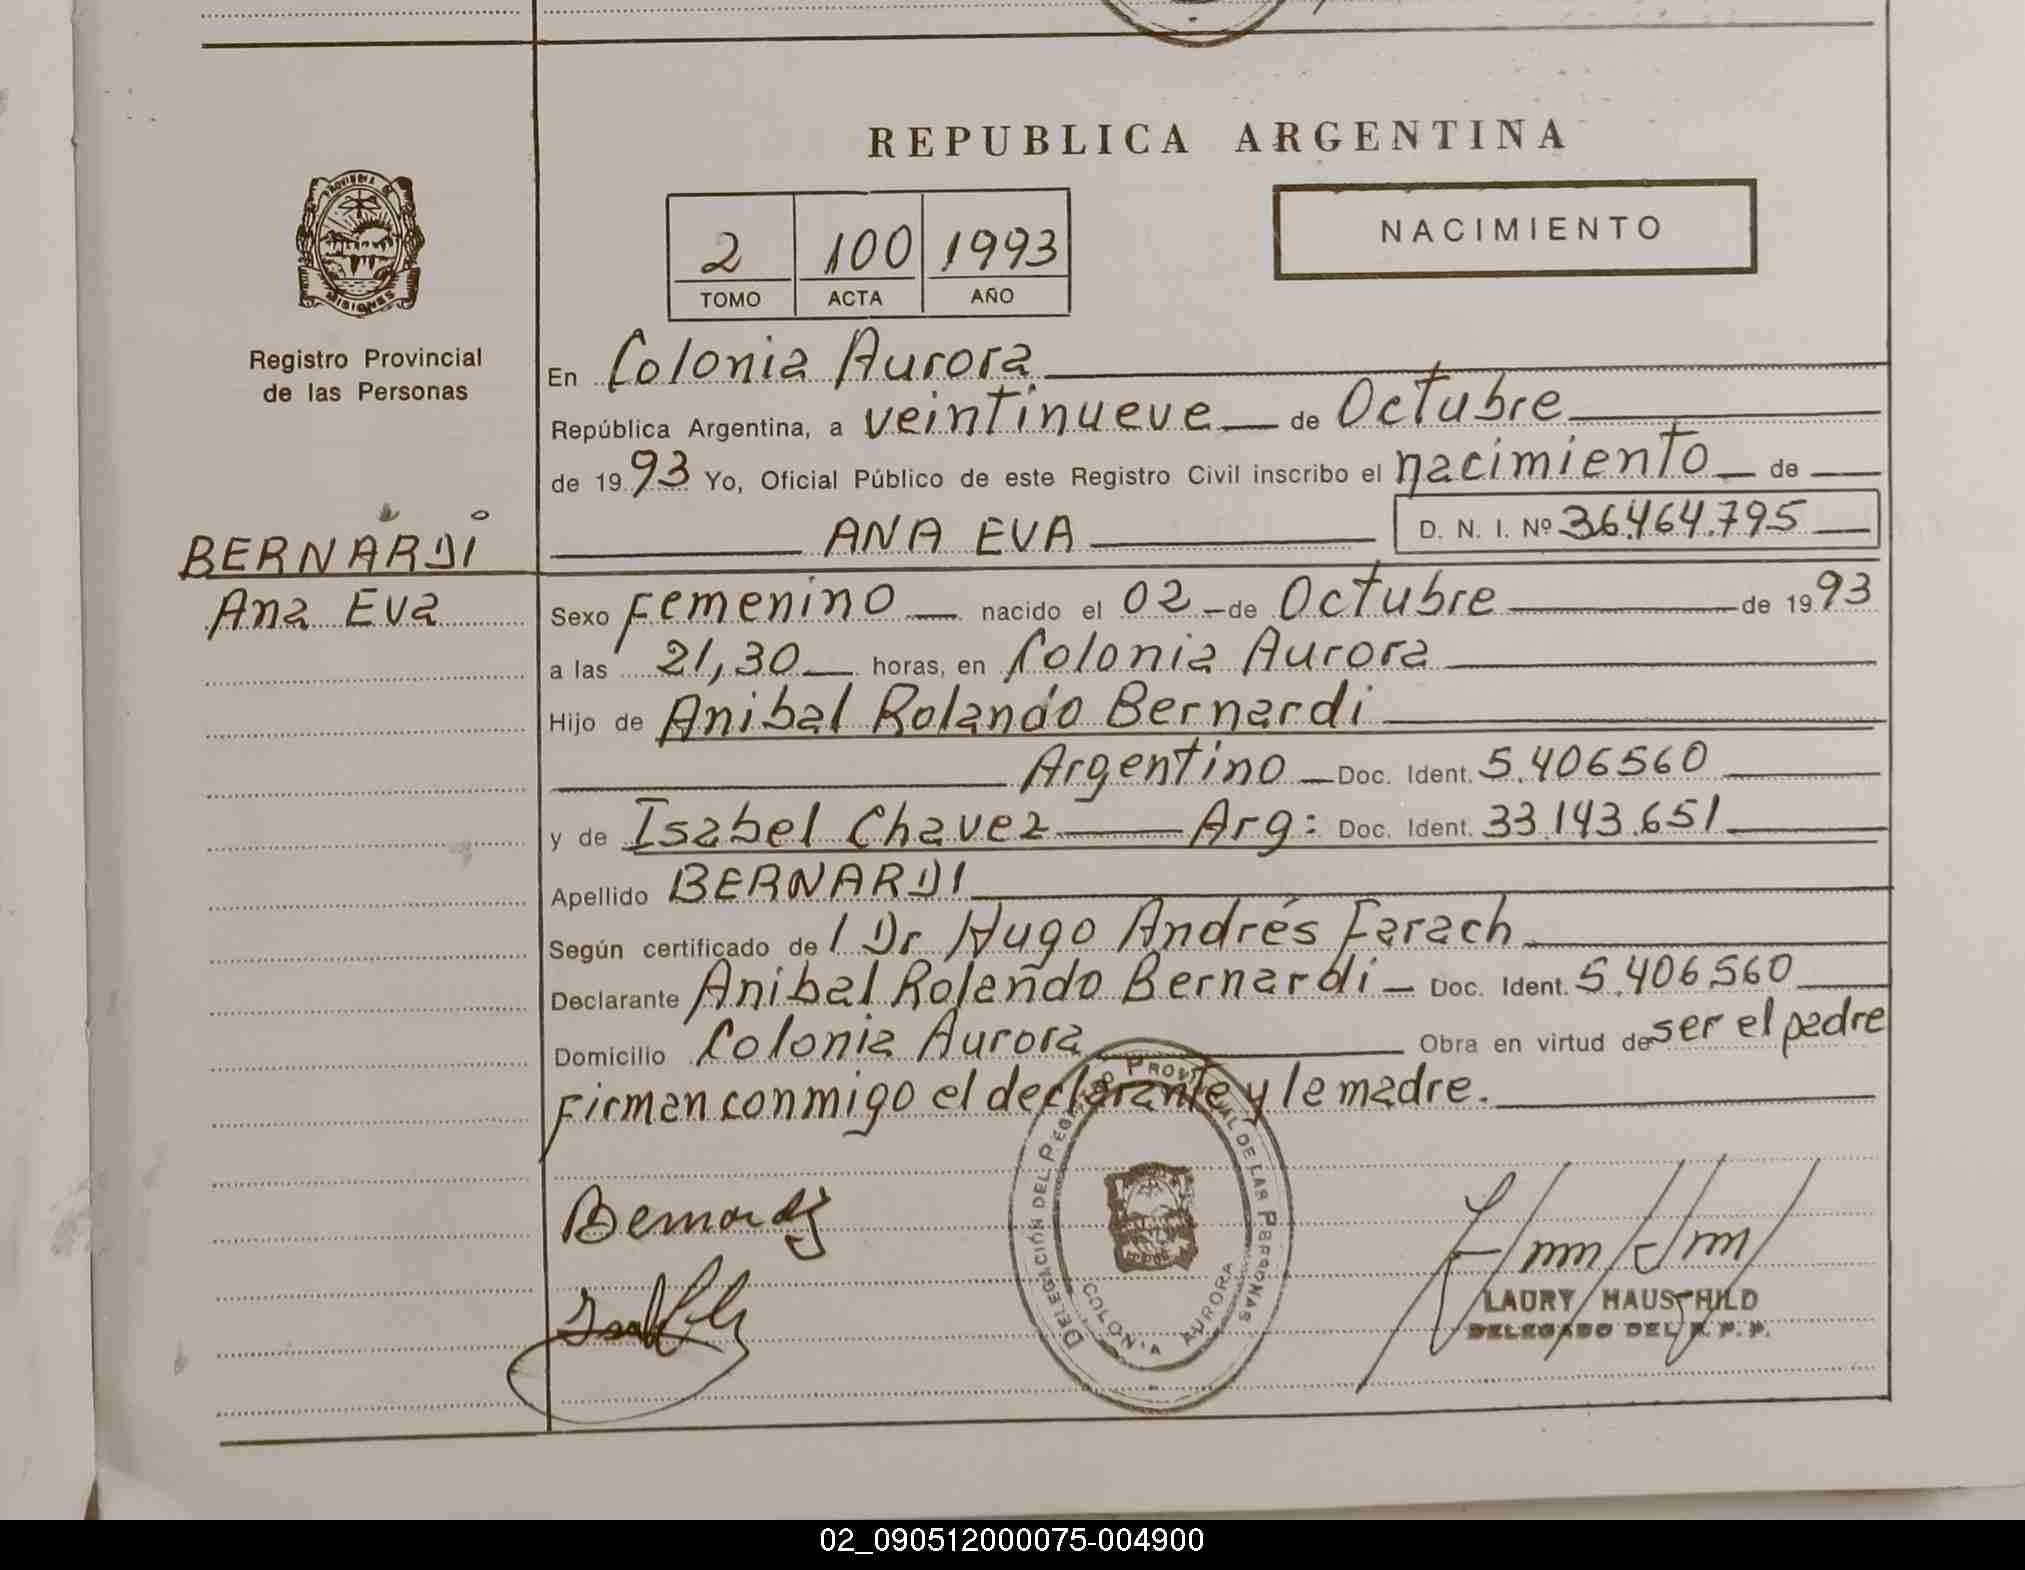 REPUBLICA ARGENTINA
PROVINCIA DE
MISIONES
Registro Provincial
de las Personas
2 100 1993
TOMO ACTA AÑO
NACIMIENTO
En Colonia Aurora
República Argentina, a veintinueve de Octubre
de 1993 Yo, Oficial Público de este Registro Civil inscribo el nacimiento de
BERNARDI
Ana Eva
ANA EVA D. N. I. Nº 36.464.795
Sexo Femenino nacido el 02 de Octubre de 1993
a las 21,30 horas, en Colonia Aurora
Hijo de Anibal Rolando Bernardi
Argentino Doc. Ident. 5.406560
y de Isabel Chavez Arg: Doc. Ident. 33.143.651
Apellido BERNARDI
Según certificado de l Dr Hugo Andrés Farach
Declarante Anibal Rolando Bernardi Doc. Ident. 5.406.560
Domicilio Colonia Aurora Obra en virtud de ser el padre
Firman conmigo el declarante y la madre.
Bernardi
DELEGACIÓN DEL REGISTRO PROVINCIAL DE LAS PERSONAS
COLONIA AURORA
LAURY HAUSCHILD
DELEGADO DEL R. P. P.
02_090512000075-004900